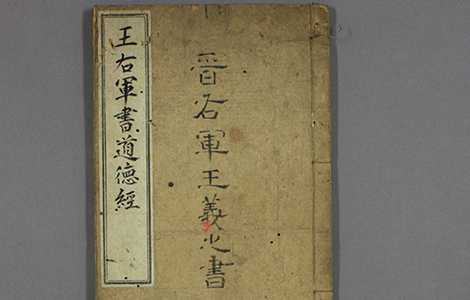 晉右軍王羲之書
王右軍書道德經